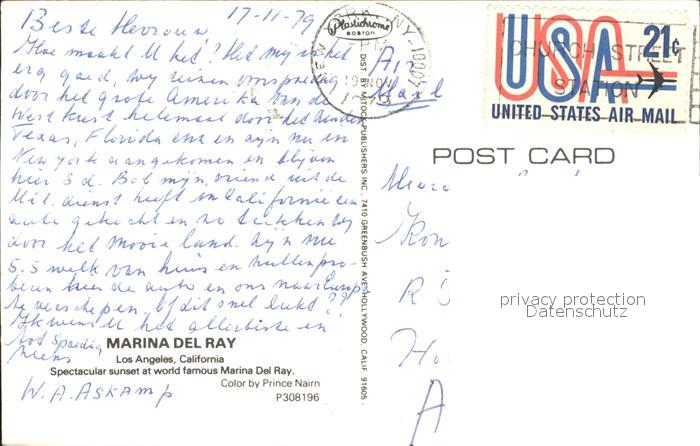 17-11-79
Beste Mevrouw
Hoe maakt U het? Met mij is het
erg goed, wy reizen voorspoedig
door het grote Amerika van de
West kust helemaal door het Zuiden
Texas, Florida enz en zyn nu in
New York aangekomen en blyven
hier 3 d. Bob mijn vriend uit de
Mil. dienst heeft in Californie een
auto gekocht en zo trekken wy
door het mooie land. Zyn nu
5.5 week van huis en zullen pro-
beren hier de auto en ons naar Europa
te verschepen, of dit snel lukt??
Ik wens U het allerbeste en
tot spoedig
W.A. Askamp
MARINA DEL RAY
Los Angeles, California
Spectacular sunset at world famous Marina Del Ray.
Color by Prince Nairn
P308196
Plastichrome
BOSTON
DIST. BY MITOCK PUBLISHERS INC., 7410 GREENBUSH AVE. HOLLYWOOD, CALIF. 91605
NEW YORK, N.Y. 10007
PM
19 NOV
1979
Air
Mail
USA 21¢
UNITED STATES AIR MAIL
CHURCH STREET
STATION
POST CARD
privacy protection
Datenschutz